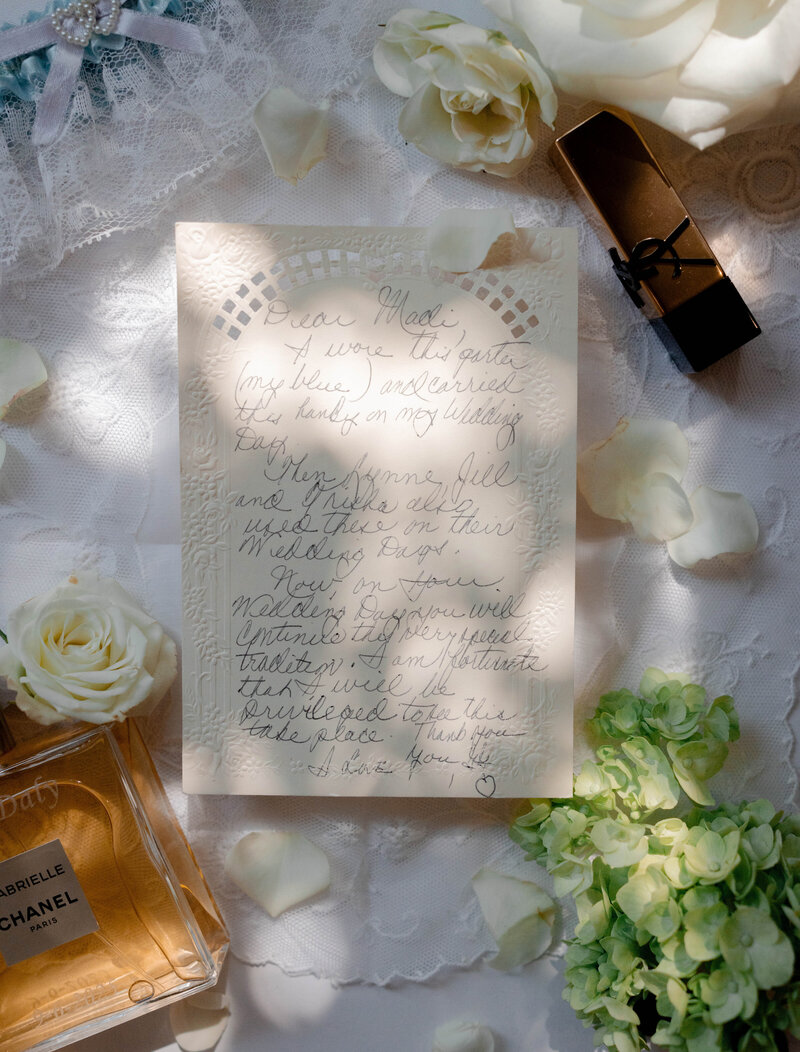 Dear Madi,
I wore this garter
(my blue) and carried
this hanky on my Wedding
Day.
Then Lynne, Jill
and Trisha also
used these on their
Wedding Days.
Now, on your
Wedding Day you will
continue this very special
tradition. I am fortunate
that I will be
privileged to see this
take place. Thank you
I Love You
YSL
ABRIELLE
CHANEL
PARIS